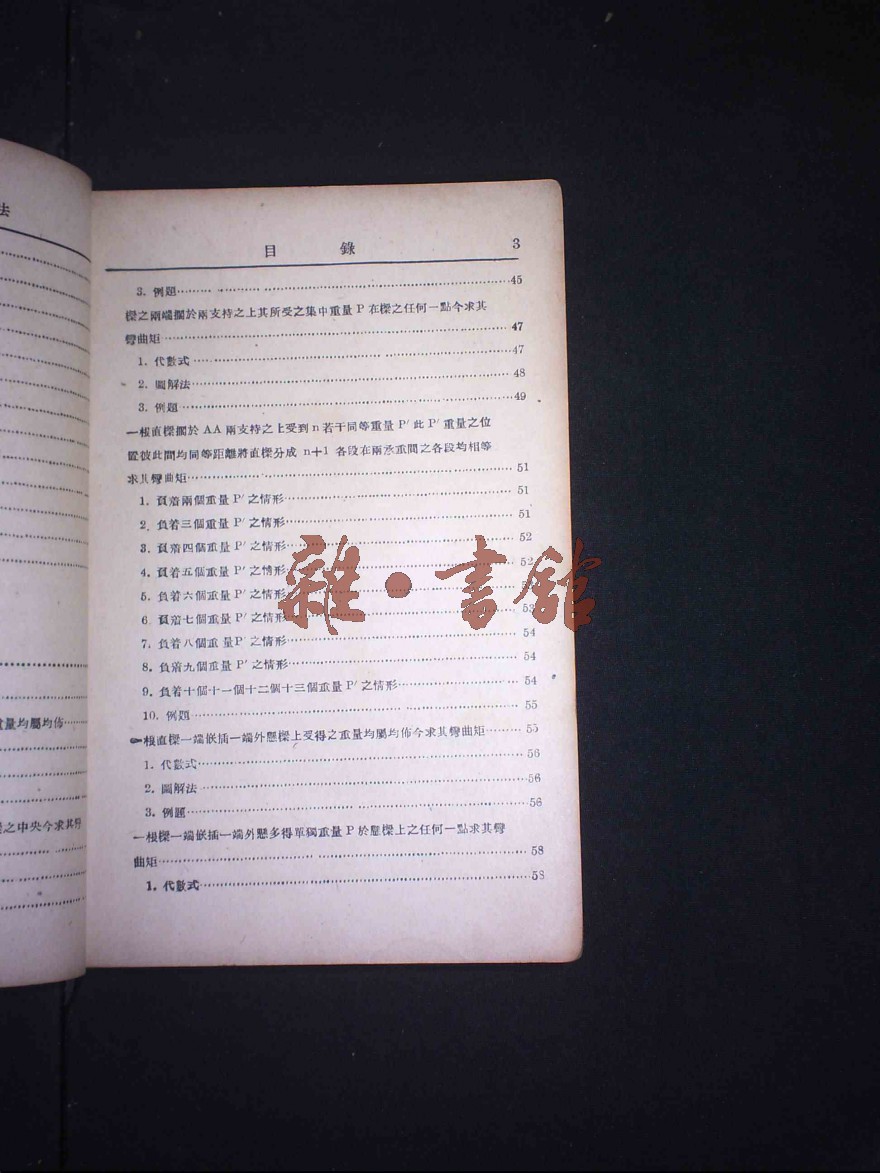 法
目錄 3
3. 例題 45
樑之兩端擱於兩支持之上其所受之集中重量 P 在樑之任何一點今求其
彎曲矩 47
1. 代數式 47
2. 圖解法 48
3. 例題 49
一根直樑擱於 AA 兩支持之上受到 n 若干同等重量 P′ 此 P′ 重量之位
置彼此間均同等距離將直樑分成 n+1 各段在兩承重間之各段均相等
求其彎曲矩 51
1. 負着兩個重量 P′ 之情形 51
2. 負着三個重量 P′ 之情形 51
3. 負着四個重量 P′ 之情形 52
4. 負着五個重量 P′ 之情形 52
5. 負着六個重量 P′ 之情形
6. 負着七個重量 P′ 之情形 53
7. 負着八個重量 P′ 之情形 54
8. 負着九個重量 P′ 之情形 54
9. 負着十個十一個十二個十三個重量 P′ 之情形 54
10. 例題 55
一根直樑一端嵌插一端外懸樑上受得之重量均屬均佈今求其彎曲矩 55
1. 代數式 56
2. 圖解法 56
3. 例題 56
一根樑一端嵌插一端外懸多得單獨重量 P 於懸樑上之任何一點求其彎
曲矩 58
1. 代數式 58
重量均屬均佈
之中央今求其彎
雜·書館